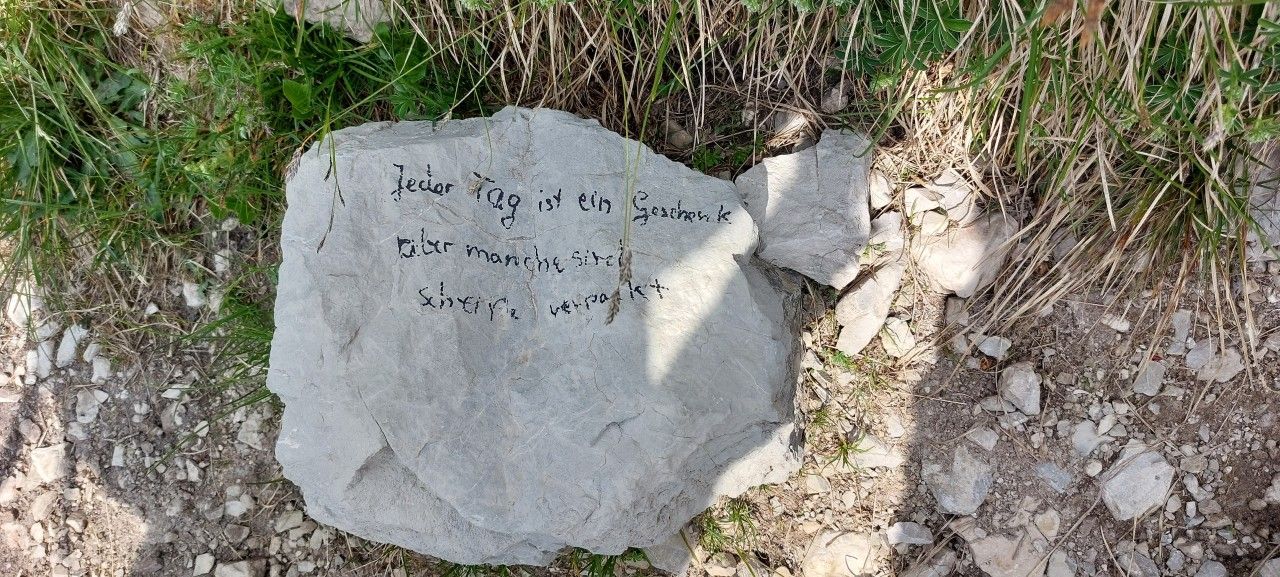 Jeder Tag ist ein Geschenk
aber manche sind
scheiße verpackt